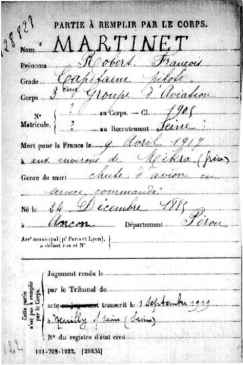 PARTIE À REMPLIR PAR LE CORPS.
Nom MARTINET
Prénoms Robert François
Grade Capitaine pilote
Corps 2 ième Groupe d'Aviation
N° ? au Corps. — Cl. 1905
Matricule. ? au Recrutement Seine
Mort pour la France le 9 Avril 1917
aux environs de Mikra
Genre de mort chute d'avion en
service commandé
Né le 24 Décembre 1885
à Ancon Département Pérou
Arr municipal (p Paris et Lyon),
à défaut rue et N°
Cette partie
n'est pas à remplir
par le Corps.
Jugement rendu le
par le Tribunal de
acte ou jugement transcrit le 1 Septembre 1919
à Neuilly s/ Seine (Seine)
N° du registre d'état civil